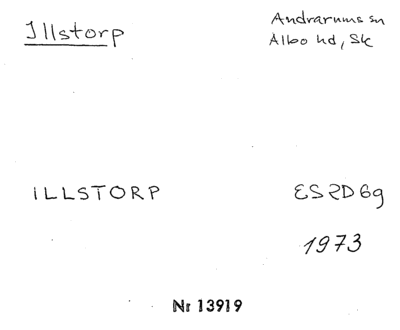 Illstorp
Andrarums sn
Albo hd, Sk
ILLSTORP
ES2D6g
1973
Nr 13919